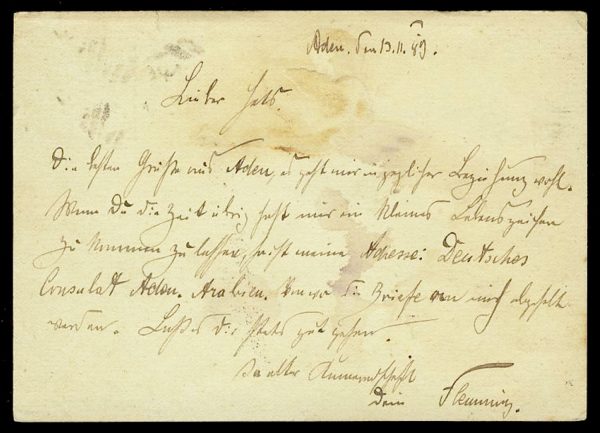 Aden. den 13.11.89.
Lieber Hals.
Die besten Grüße aus Aden, es geht mir in jeglicher Beziehung wohl.
Wenn Du die Zeit übrig hast mir ein kleines Lebenszeichen
zu kommen zu lassen, so ist meine Adresse: Deutsches
Consulat Aden. Arabien. von wo die Briefe von mir abgeholt
werden. Laß es Dir stets gut gehen.
In alter Freundschaft
Dein Flemming.